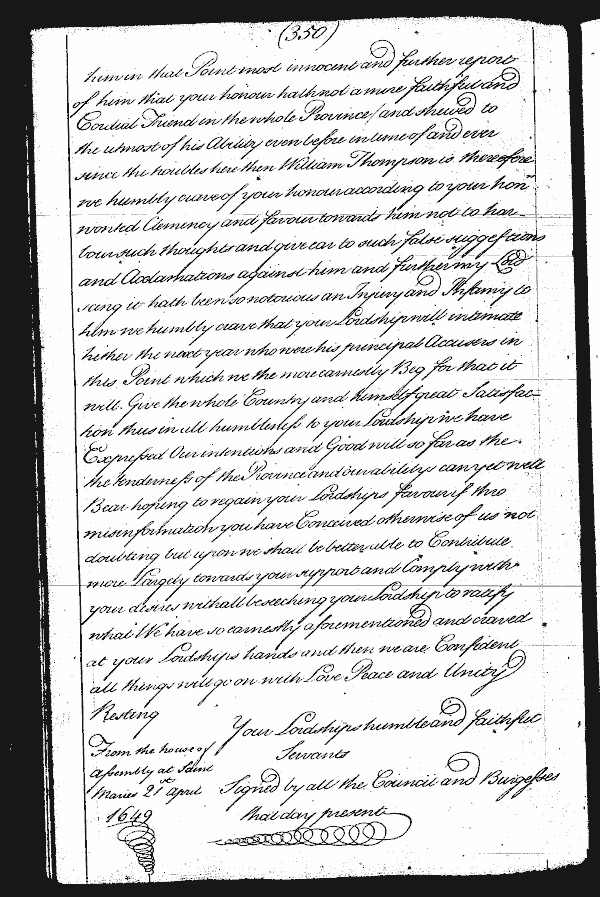 (350)
him in that Point most innocent and further report
of him that your honour hath not a more faithful and
Cordial Friend in the whole Province / and shewed to
the utmost of his Ability even before in time of and ever
since the troubles here then William Thompson is therefore
we humbly crave of your honour according to your hon
wonted Clemency and favour towards him not to har-
bour such thoughts and give ear to such false suggestions
and Acclamations against him and further my Lord
seing it hath been so notorious an Injury and Infamy to
him we humbly crave that your Lordship will intimate
hether the next year who were his principal Accusers in
this Point which we the more earnestly Beg for that it
will Give the whole Country and himself great Satisfac-
tion thus in all humbleness to your Lordship we have
Expressed Our intentions and Good will so far as the
the tenderness of the Province and our ability can yet well
Bear hoping to regain your Lordships favour if thro
misinformation you have Conceived otherwise of us not
doubting but upon we shall be better able to Contribute
more Largely towards your support and Comply with
your desires withall beseching your Lordship to ratify
what We have so earnestly aforementioned and craved
at your Lordships hands and then we are Confident
all things will go on with Love Peace and Unity
Resting
Your Lordships humble and faithful
Servants
From the house of
Assembly at Saint
Maries 21st April
1649
Signed by all the Council and Burgesses
that day present